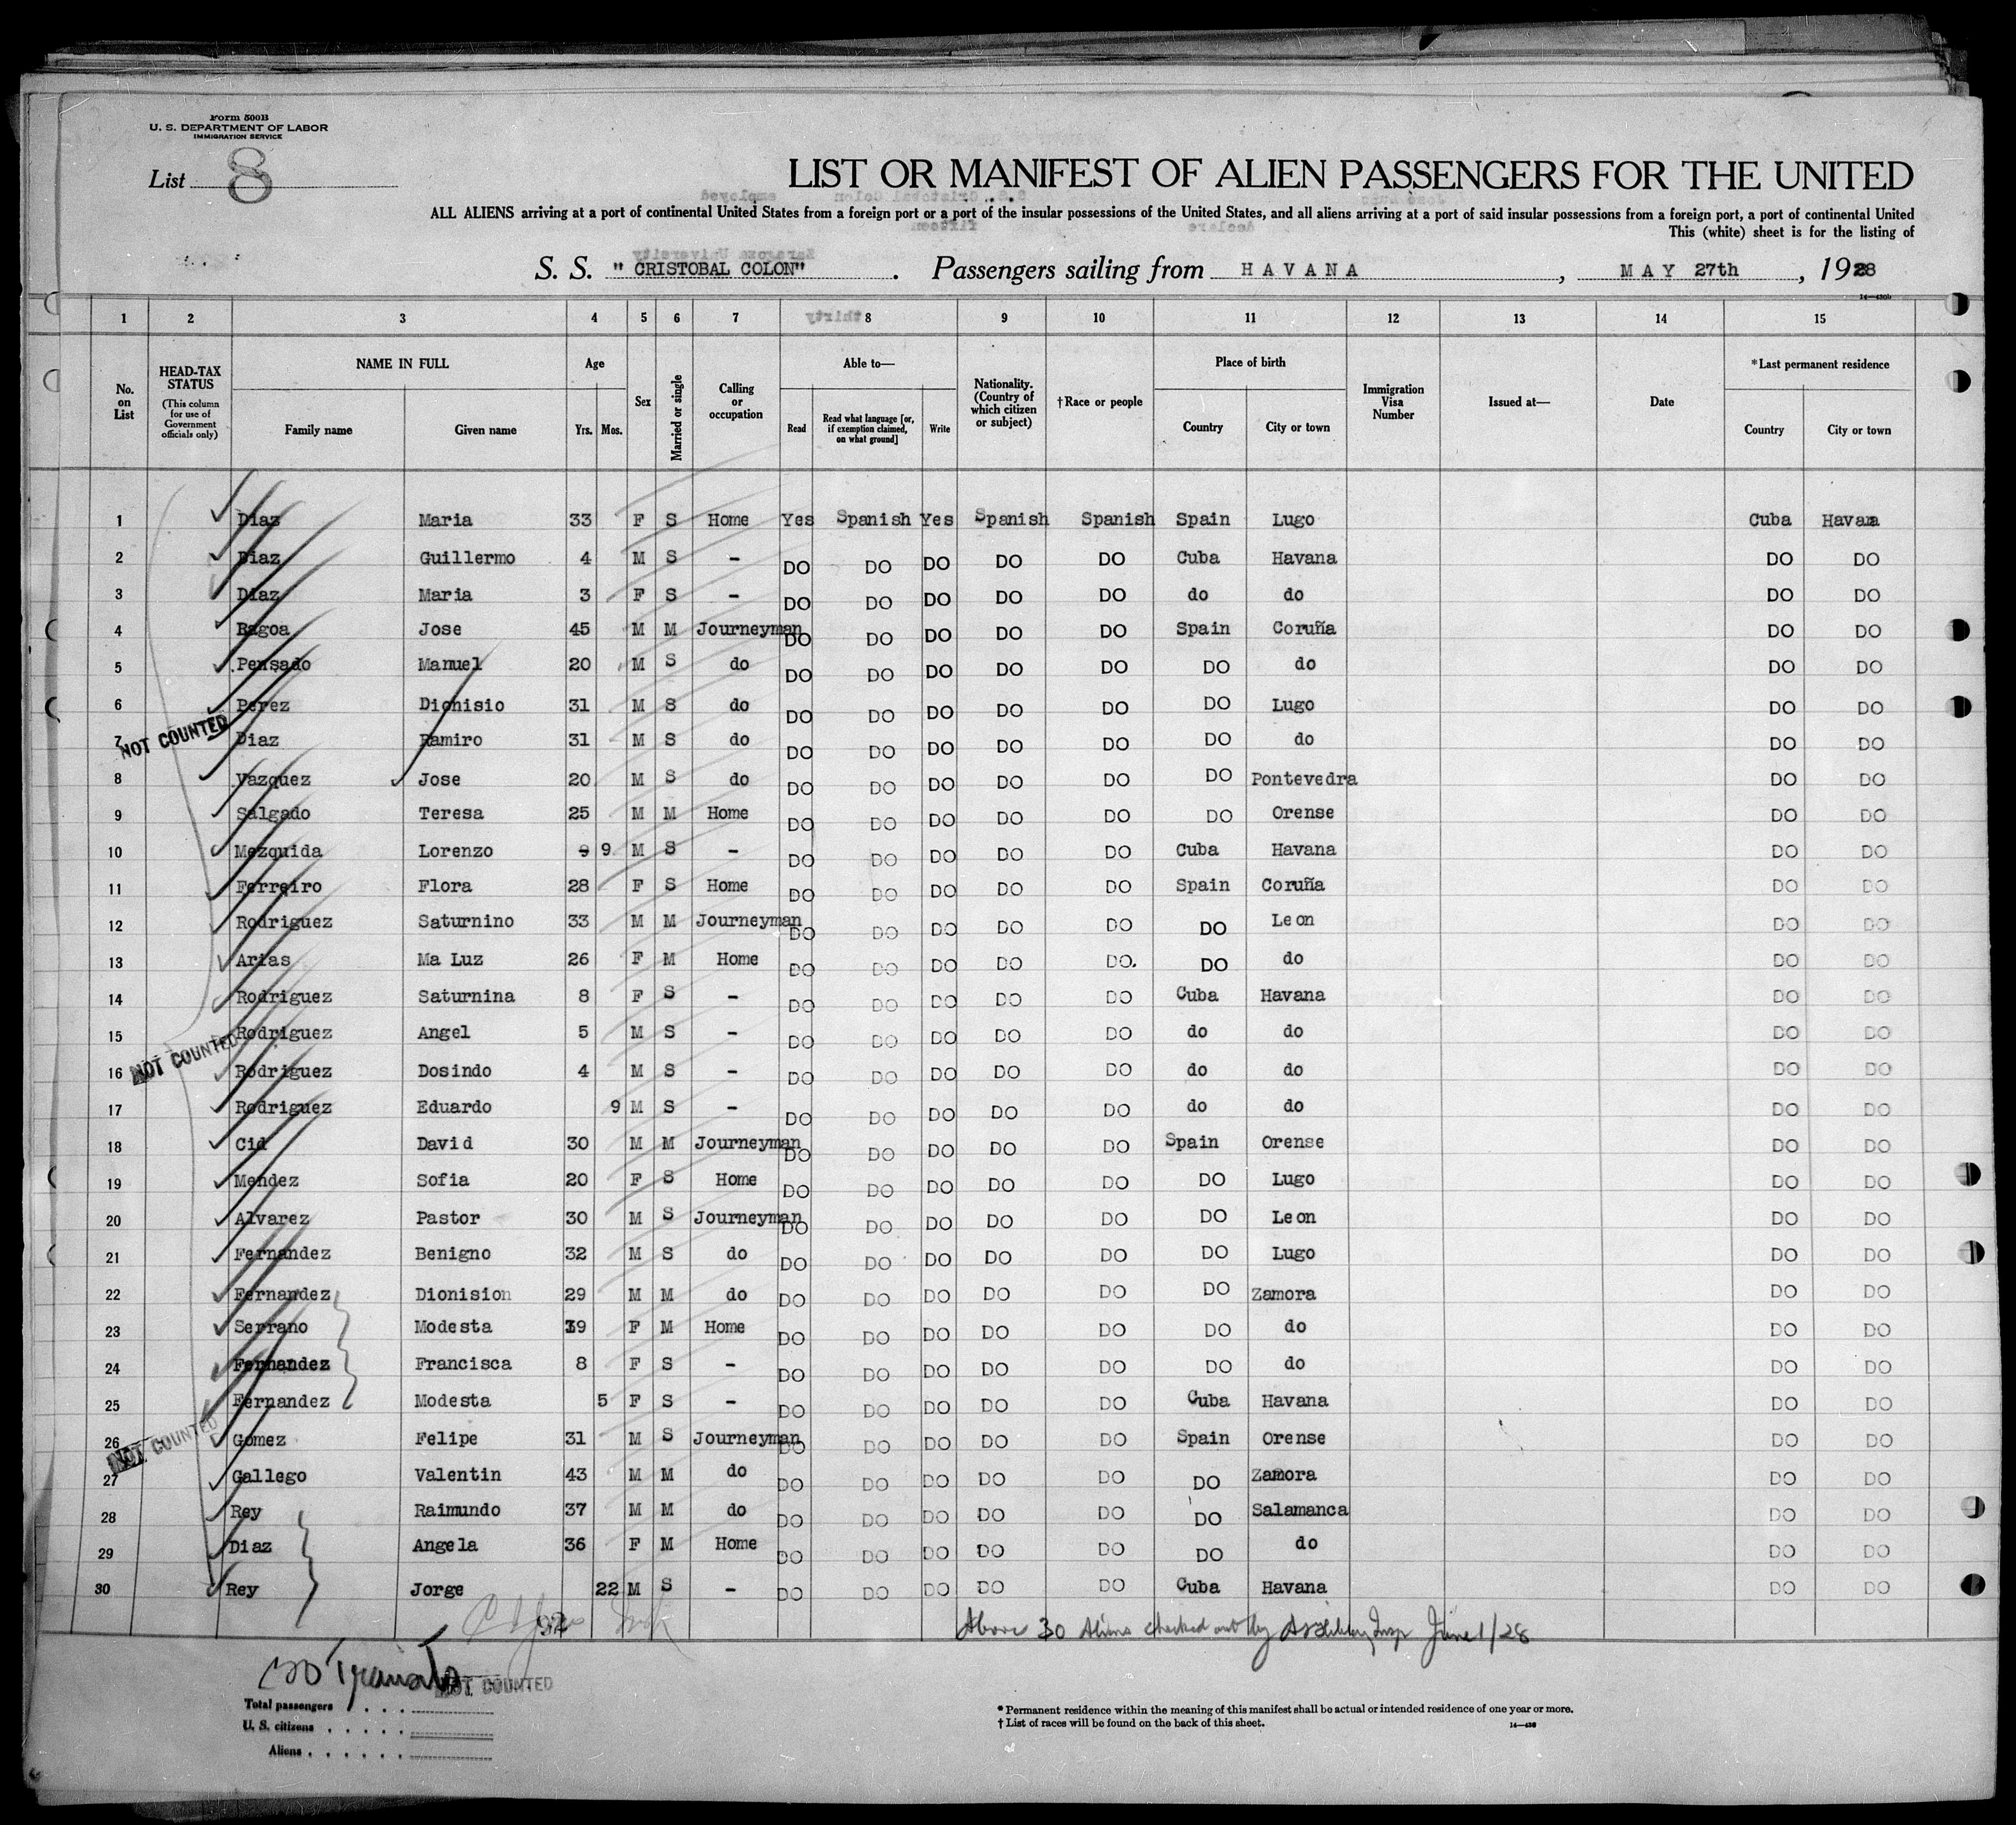 Form 500B
U. S. DEPARTMENT OF LABOR
IMMIGRATION SERVICE
List 8
LIST OR MANIFEST OF ALIEN PASSENGERS FOR THE UNITED
ALL ALIENS arriving at a port of continental United States from a foreign port or a port of the insular possessions of the United States, and all aliens arriving at a port of said insular possessions from a foreign port, a port of continental United
This (white) sheet is for the listing of
S. S. "CRISTOBAL COLON". Passengers sailing from HAVANA, MAY 27th, 1928
1 2 3 4 5 6 7 8 9 10 11 12 13 14 15
No. on List HEAD-TAX STATUS (This column for use of Government officials only) NAME IN FULL Family name Given name Age Yrs. Mos. Sex Married or single Calling or occupation Able to— Read Read what language [or, if exemption claimed, on what ground] Write Nationality. (Country of which citizen or subject) †Race or people Place of birth Country City or town Immigration Visa Number Issued at— Date *Last permanent residence Country City or town
1 Diaz Maria 33 F S Home Yes Spanish Yes Spanish Spanish Spain Lugo Cuba Havana
2 Diaz Guillermo 4 M S - DO DO DO DO DO Cuba Havana DO DO
3 Diaz Maria 3 F S - DO DO DO DO DO do do DO DO
4 Ragoa Jose 45 M M Journeyman DO DO DO DO DO Spain Coruña DO DO
5 Pensado Manuel 20 M S do DO DO DO DO DO DO do DO DO
6 Perez Dionisio 31 M S do DO DO DO DO DO DO Lugo DO DO
NOT COUNTED
7 Diaz Ramiro 31 M S do DO DO DO DO DO DO do DO DO
8 Vazquez Jose 20 M S do DO DO DO DO DO DO Pontevedra DO DO
9 Salgado Teresa 25 M M Home DO DO DO DO DO DO Orense DO DO
10 Mezquida Lorenzo 9 9 M S - DO DO DO DO DO Cuba Havana DO DO
11 Ferreiro Flora 28 F S Home DO DO DO DO DO Spain Coruña DO DO
12 Rodriguez Saturnino 33 M M Journeyman DO DO DO DO DO DO Leon DO DO
13 Arias Ma Luz 26 F M Home DO DO DO DO DO. DO do DO DO
14 Rodriguez Saturnina 8 F S - DO DO DO DO DO Cuba Havana DO DO
15 Rodriguez Angel 5 M S - DO DO DO DO DO do do DO DO
NOT COUNTED
16 Rodriguez Dosindo 4 M S - DO DO DO DO DO do do DO DO
17 Rodriguez Eduardo 9 M S - DO DO DO DO DO do do DO DO
18 Cid David 30 M M Journeyman DO DO DO DO DO Spain Orense DO DO
19 Mendez Sofia 20 F S Home DO DO DO DO DO DO Lugo DO DO
20 Alvarez Pastor 30 M S Journeyman DO DO DO DO DO DO Leon DO DO
21 Fernandez Benigno 32 M S do DO DO DO DO DO DO Lugo DO DO
22 Fernandez Dionision 29 M M do DO DO DO DO DO DO Zamora DO DO
23 Serrano Modesta 39 F M Home DO DO DO DO DO DO do DO DO
24 Fernandez Francisca 8 F S - DO DO DO DO DO DO do DO DO
25 Fernandez Modesta 5 F S - DO DO DO DO DO Cuba Havana DO DO
NOT COUNTED
26 Gomez Felipe 31 M S Journeyman DO DO DO DO DO Spain Orense DO DO
27 Gallego Valentin 43 M M do DO DO DO DO DO DO Zamora DO DO
28 Rey Raimundo 37 M M do DO DO DO DO DO DO Salamanca DO DO
29 Diaz Angela 36 F M Home DO DO DO DO DO DO do DO DO
30 Rey Jorge 22 M S - DO DO DO DO DO Cuba Havana DO DO
Above 30 Aliens checked out by Insp June 1/28
NOT COUNTED
Total passengers
U. S. citizens
Aliens
* Permanent residence within the meaning of this manifest shall be actual or intended residence of one year or more.
† List of races will be found on the back of this sheet.